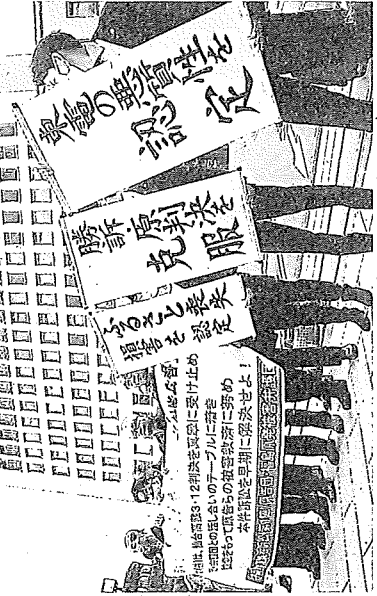 東電の悪質性を
認定
勝訴 原判決を
克服
ふるさと喪失
損害を認定
仙台高裁3・12判決を真摯に受け止め
団との話し合いのテーブルに着き
をもって原告らの被害救済に努め
本件訴訟を早期に解決せよ!